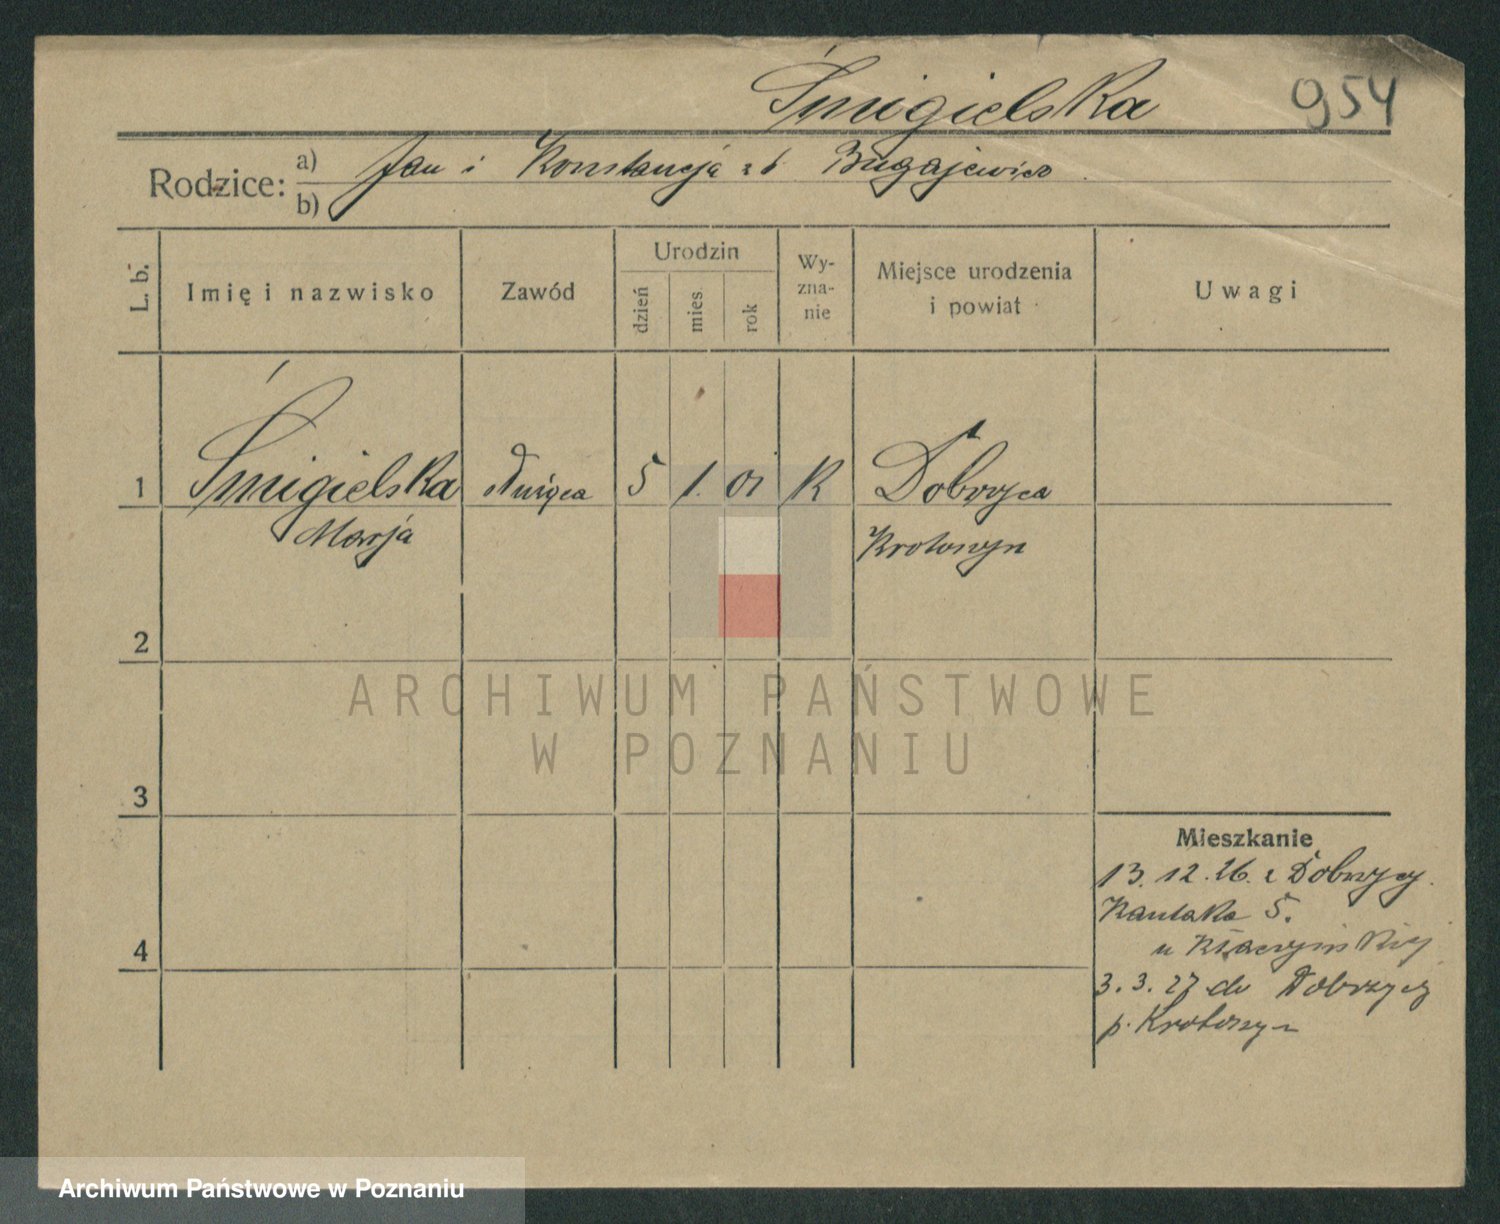 Śmigielska 954
Rodzice: a) Jan i Konstancja z d. Bugajewicz
b)
L. b. Imię i nazwisko Zawód Urodzin dzień mies. rok Wyznanie Miejsce urodzenia i powiat Uwagi
1 Śmigielska służąca 5 1. 01 K Dobrzyca
Marja Krotoszyn
2
ARCHIWUM PAŃSTWOWE
W POZNANIU
3
Mieszkanie
13.12.26. z Dobrzycy.
Kantaka 5.
4 u
3.3.27 do Dobrzycy
p. Krotoszyn
Archiwum Państwowe w Poznaniu